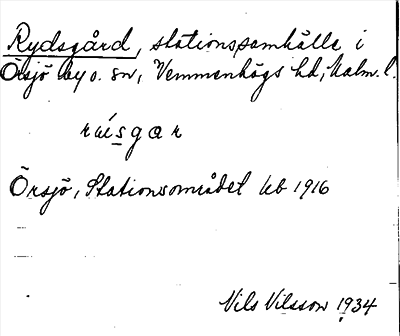 Rydsgård, stationssamhälle i
Örsjö by o. sn, Vemmenhögs hd, Malm. l.
Örsjö, Stationsområdet kb 1916
Nils Nilsson 1934